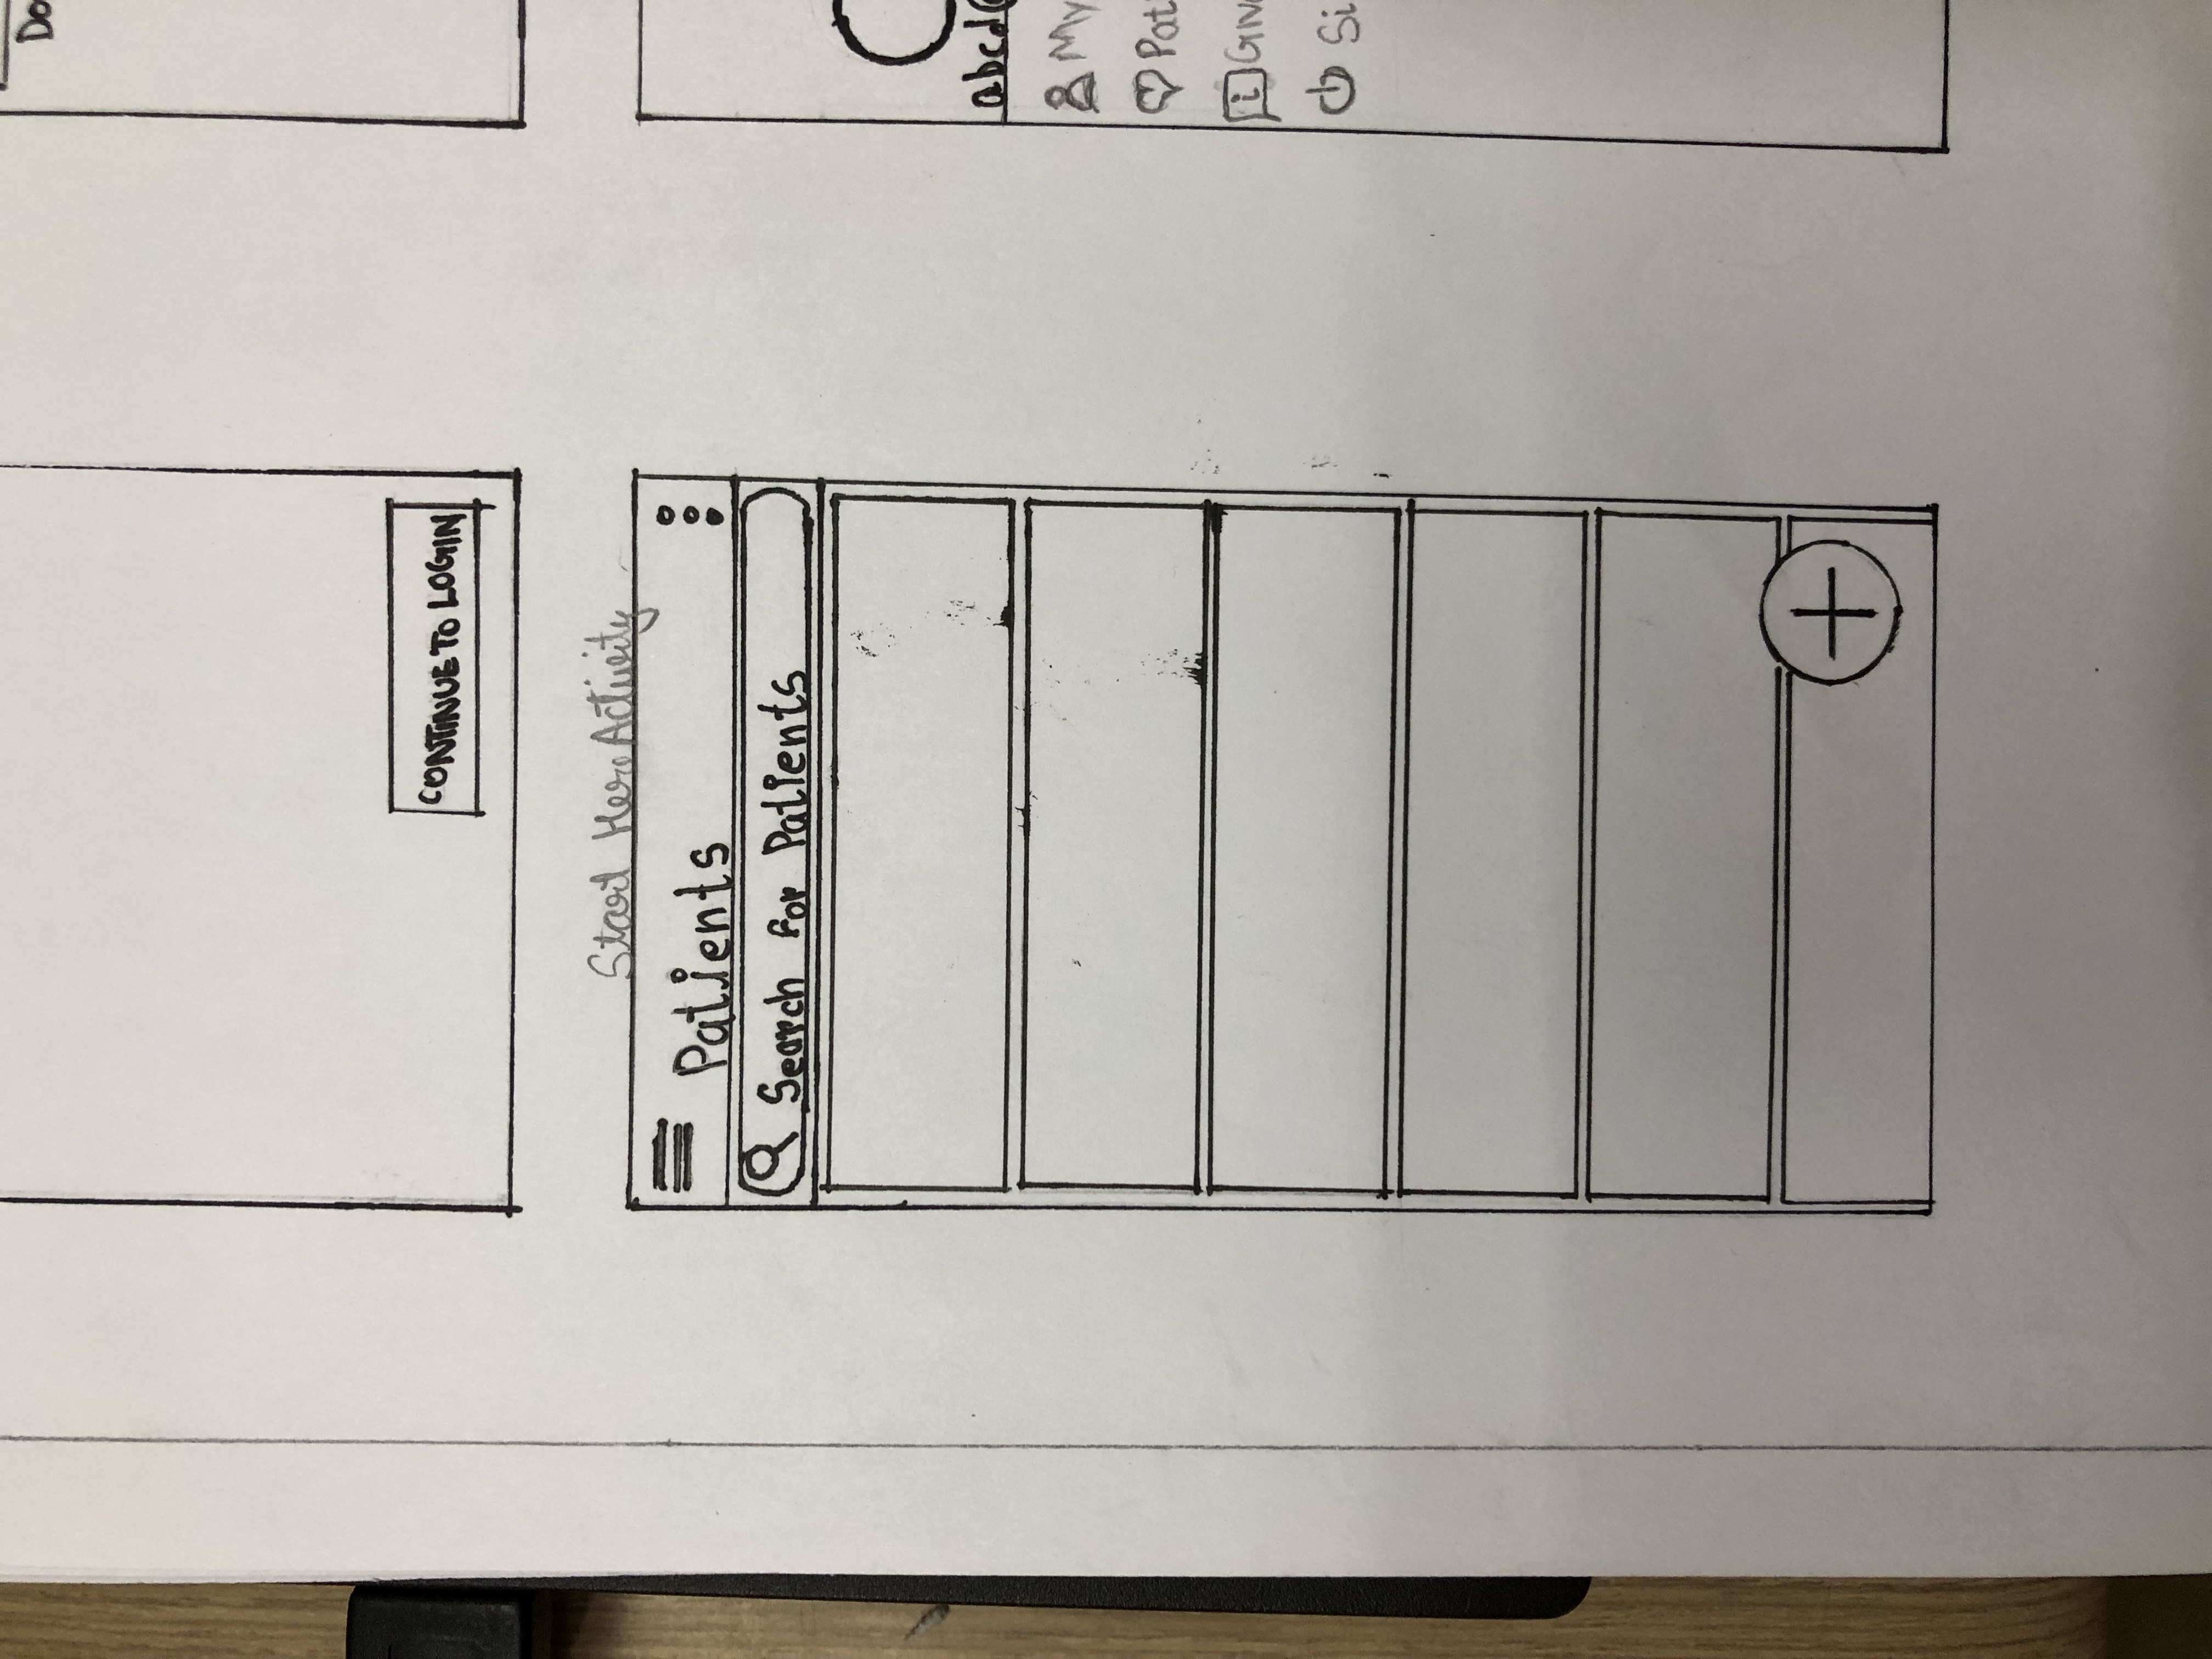 Do
CONTINUE TO LOGIN
Start Here Activity
Patients
Search for Patients
abcd@
My
Pat
Giv
Si